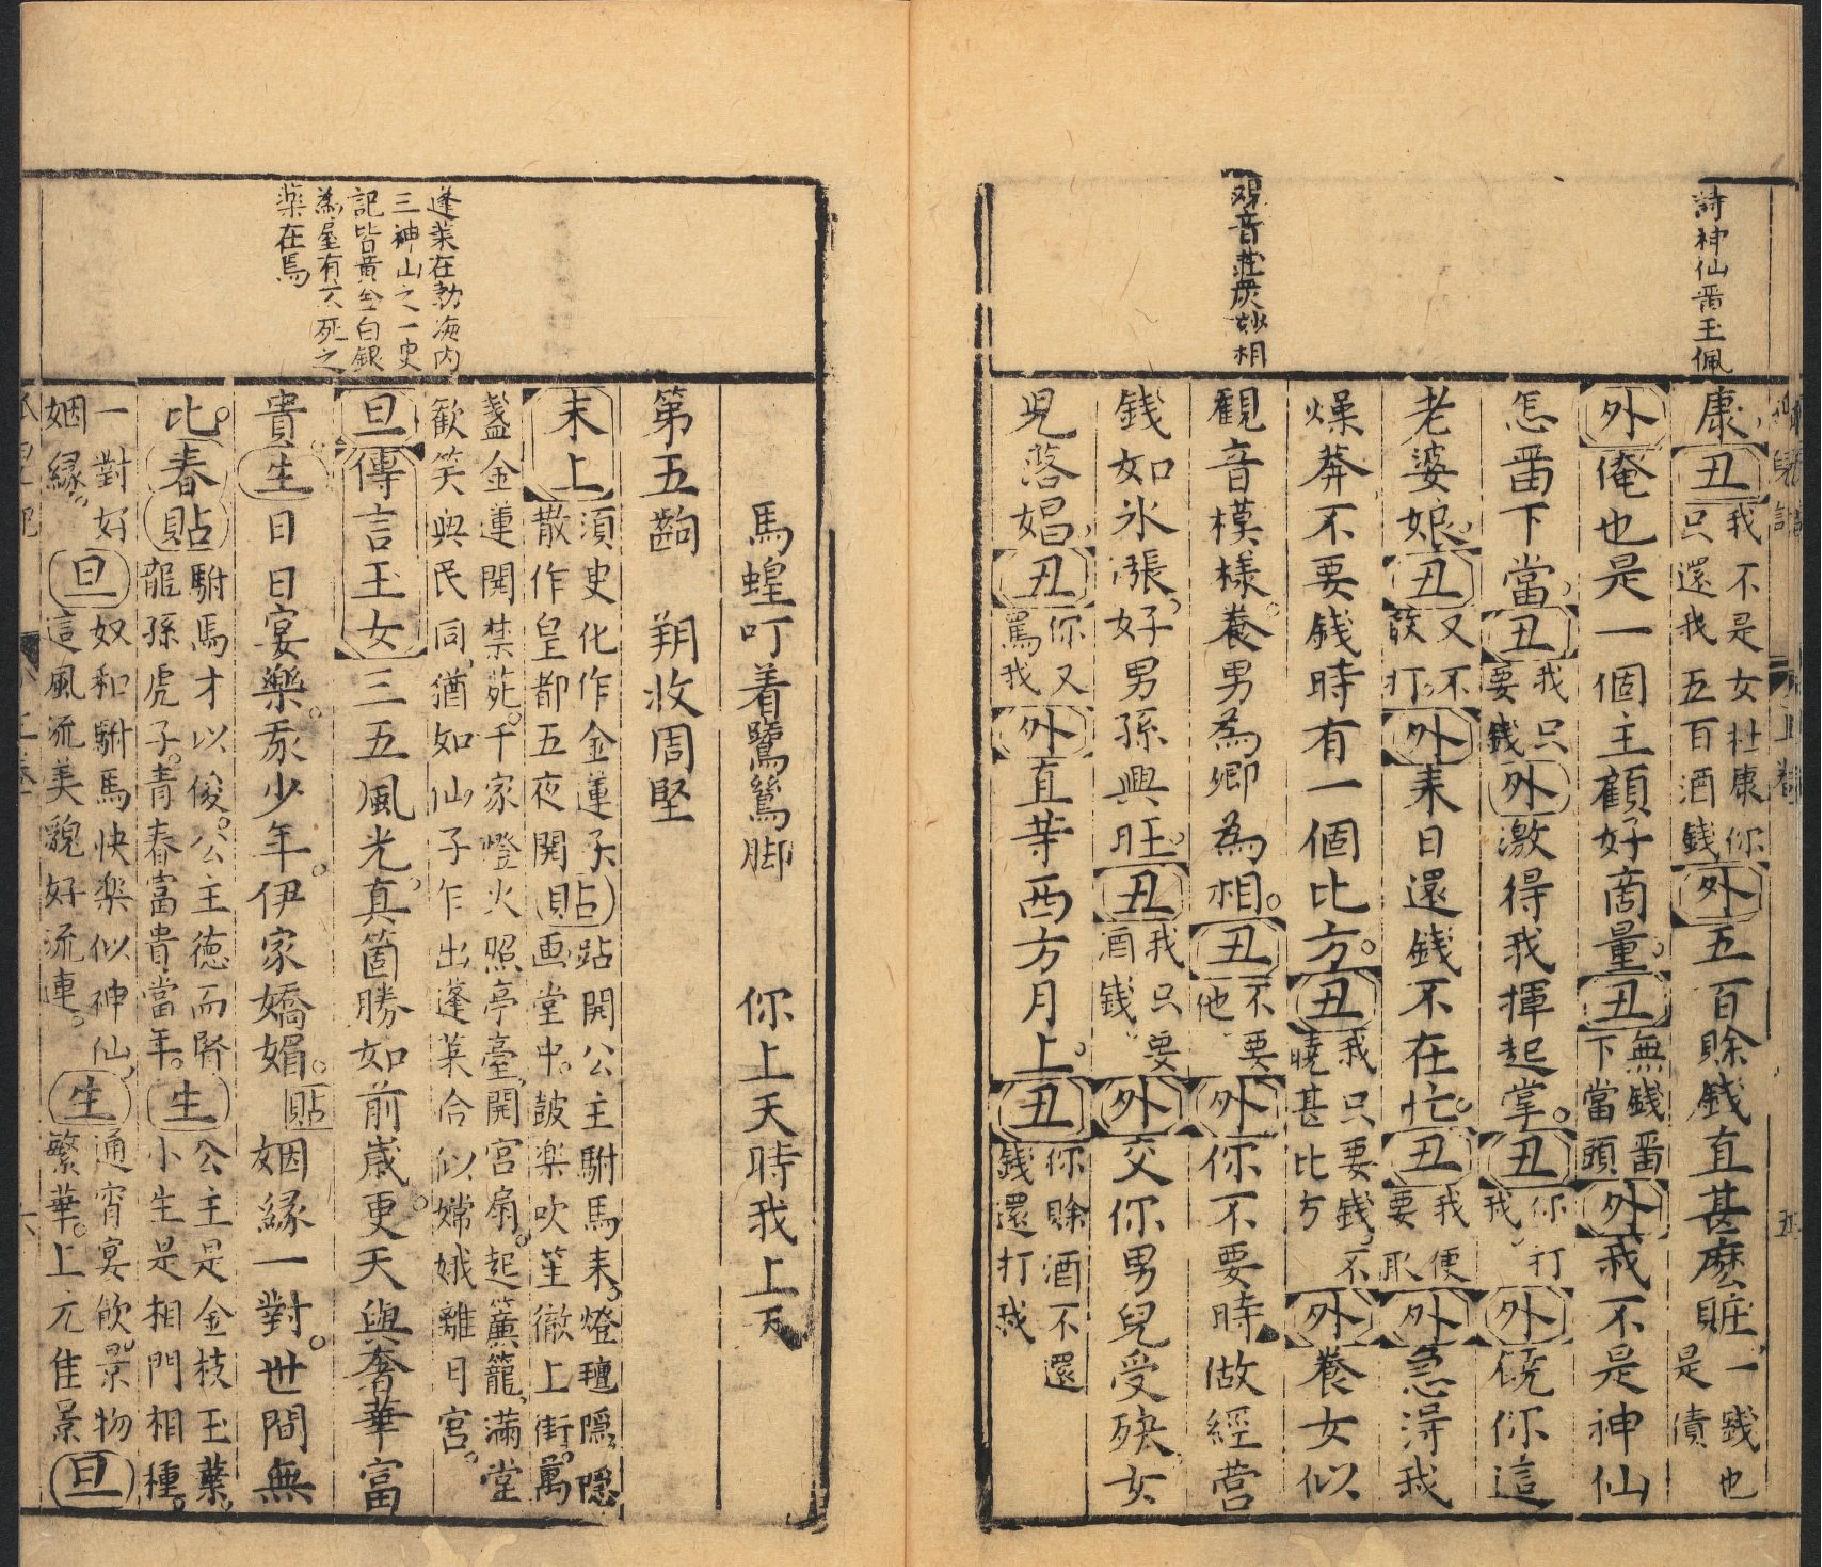 詩神仙畱玉佩
康丑我不是女杜康你只還我五百酒錢外五百賖錢直甚麽賍一錢也是債
外俺也是一個主顧好啇量丑無錢畱下當頭外我不是神仙
怎畱下當丑我只要錢外激得我揮起掌丑你打我外饒你這
老婆娘丑又不敢打外来日還錢不在忙丑我便要取外急淂我
燥莽不要錢時有一個比方丑我只要錢不曉甚比方外養女似
觀音模様養男為卿為相丑不要他外你不要時做經营
錢如氷漲好男孫興旺丑我只要酒錢外交你男兒受殃女
兒落娼丑你又罵我外直等西方月上丑你賖酒不還錢還打我
馬蝗叮着鷺鷥脚　你上天時我上天
第五齣　朔收周堅
蓬莱在勃海内
三神山之一史
記皆黄金白銀
為屋有不死之
薬在焉
末上須史化作金蓮子散作皇都五夜開貼跕開公主駙馬来燈毬隱隱画堂中皷楽吹笙徹上街萬
盞金蓮開禁苑千家燈火照亭臺開宫扇起簾籠滿堂歡笑與民同猶如仙子乍出蓬莱合似嫦娥離月宫
旦傳言玉女三五風光真箇勝如前歲更天與奢華富
貴生日日宴樂矧少年伊家嬌媚貼姻緣一對世間無
比春貼駙馬才以俊公主德而賢龍孫虎子青春富貴當年生公主是金枝玉葉小生是相門相種
一對好姻緣旦一奴和駙馬快楽似神仙這風流美貌好流連生通宵宴飲景物繁華上元佳景旦